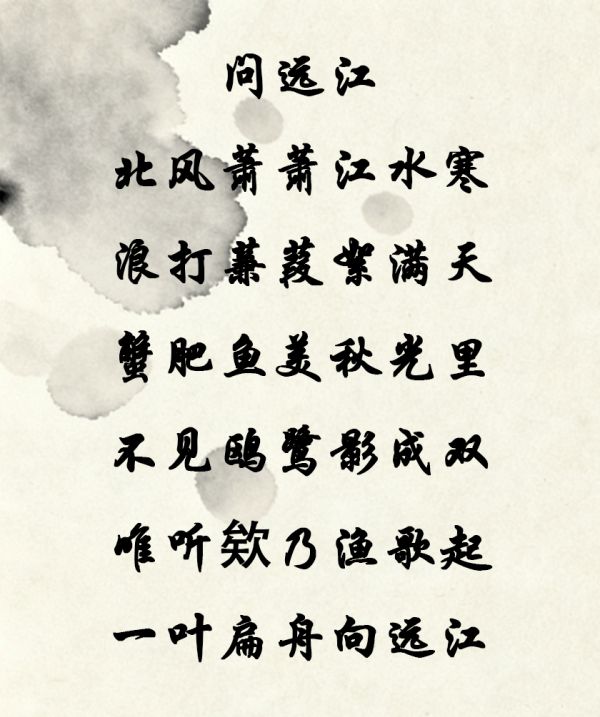 问远江
北风萧萧江水寒
浪打蒹葭絮满天
蟹肥鱼美秋光里
不见鸥鹭影成双
唯听欸乃渔歌起
一叶扁舟向远江